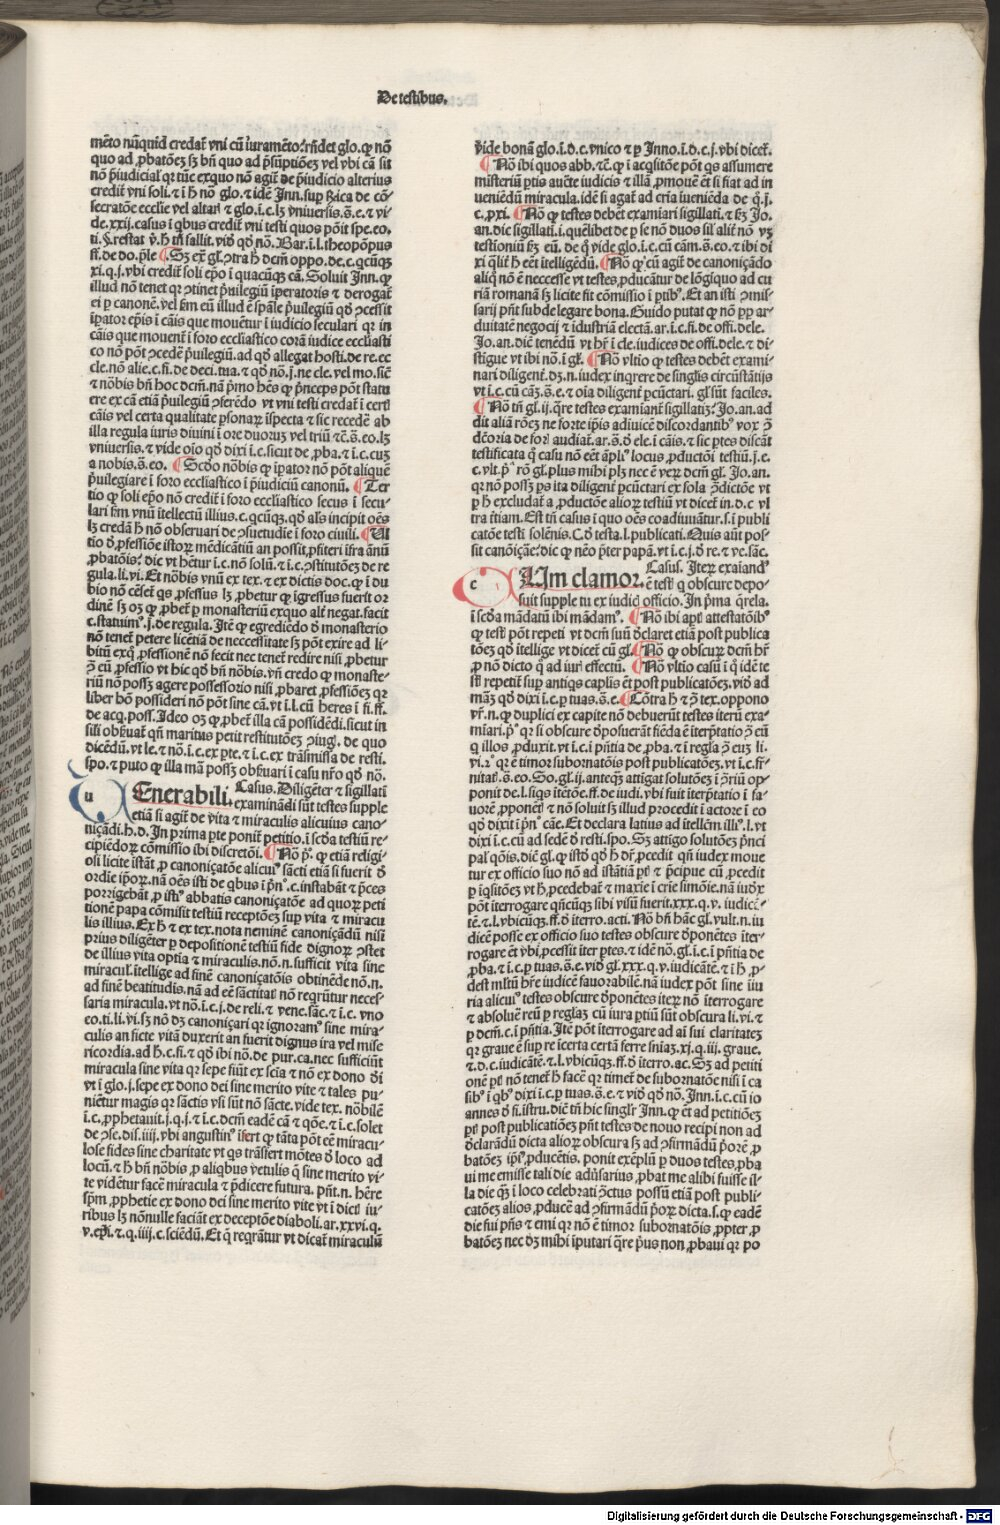 De testibus.
mēto nūquid credat̄ vni cū iuramēto: rn̄det glo. ꝙ nō
quo ad ꝓbatōeꝫ sꝫ bn̄ quo ad p̄sūptiōeꝫ vel vbi cā sit
nō p̄iudicial' qꝛ tūc exquo nō agit̄ de p̄iudicio alterius
secratōe ecclie vel altaꝛ̄ ⁊ glo. i. c. lꝫ vniuersis. s̄. e. ⁊ vi-
de. xxij. casus i qbus credit̄ vni testi quos pōit spe. eo.
ff. de do. p̄le ¶ Sꝫ
xi. q. j. vbi credit̄ soli ep̄o i quacūqꝫ cā. Soluit Inn. ꝙ
illud nō tenet qꝛ ꝯtinet p̄uilegiū īperatoris ⁊ derogat̄
ei p canonē. vel fm eū illud ē spāle p̄uilegiū qd' ꝯcessit
īpator ep̄is i cāis que mouētur i iudicio seculari qꝛ in
cāis que mouent̄ i foro ecclīastico corā iudice ecclīasti
co nō pōt ꝯcedē p̄uilegiū. ad qd' allegat hosti. de re. ec
cle. nō alie. c. fi. de deci. tua. ⁊ qd' nō. j. ne cle. vel mo. sic̄
⁊ nōbis bn̄ hoc dcm̄. nā p̄mo hēs ꝙ p̄nceps pōt statu
ere ex cā etiā p̄uilegiū ꝯferēdo vt vni testi credat̄ i certi
cāis vel certa qualitate ꝑsonaꝝ īspecta ⁊ sic recedē ab
illa regula iuris diuini i ore duorū vel triū ⁊c̄. s̄. eo. lꝫ
vniuersis. ⁊ vide oīo qd' dixi i. c. sicut de ꝓba. ⁊ i. c. cuꝫ
a nobis. s̄. eo. ¶ Scdo nōbis ꝙ īpator nō pōt aliquē
p̄uilegiare i foro ecclīastico i p̄iudiciū canonū. ¶ Ter
tio ꝙ soli ep̄o nō credit̄ i foro ecclīastico secus i secu-
lari fm vnū itellectū illius. c. qcūqꝫ. qd' als incipit oēs
lꝫ credā h̄ nō obseruari de ꝯsuetudie i foro ciuili. ¶ Ul
tio d' ꝓfessiōe istoꝝ mēdicātiū an possit ꝓfiteri ifra ānū
ꝓbatōis: dic vt hētur i. c. nō solū. ⁊ i. c. ꝯstitutōeꝫ de re
gula. li. vi. Et nōbis vnū ex tex. ⁊ ex dictis doc. ꝙ i du
bio nō cēset̄ qs ꝓfessus lꝫ ꝓbetur ꝙ īgressus fuerit or
dinē sꝫ oꝫ ꝙ ꝓbet̄ ꝑ monasteriū exquo alt̄ negat. facit
c. statuim'. j. de regula. Itē ꝙ egrediēdo d' monasterio
nō tenet̄ petere licētiā de neccessitate sꝫ pōt exire ad li-
bitū exqꝫ ꝓfessionē nō fecit nec tenet̄ redire nisi ꝓbetur
ꝯ eū ꝓfessio vt hic qd' bn̄ nōbis. vn̄ credo ꝙ monaste-
riū nō possꝫ agere possessorio nisi ꝓbaret ꝓfessiōeꝫ qꝛ
liber hō possideri nō pōt sine cā. vt i. l. cū heres i fi. ff.
de acq. poss. Ideo oꝫ ꝙ ꝓbet̄ illa cā possidēdi. sicut in
sili obseruat̄ qn̄ maritus petit restitutōeꝫ ꝯiugl'. de quo
dicēdū. vt le. ⁊ nō. i. c. ex ꝑte. ⁊ i. c. ex trāsmissa de resti.
spo. ⁊ puto ꝙ illa mā possꝫ obseruari i casu nr̄o qd' nō.
u Enerabili. Casus. Diligēter ⁊ sigillati
examinādi sūt testes supple
etiā si agit̄ de vita ⁊ miraculis alicuius cano-
niçādi. h. d. In prima pte ponit̄ petitio. i scd'a testiū re-
cipiēdoꝝ cōmissio ibi discretōi. ¶ Nō p̄'. ꝙ etiā religi-
osi licite istāt ꝓ canoniçatōe alicui' sācti etiā si fuerit d'
ordie ipoꝝ. nā oēs isti de qbus i p̄n'. c. instabāt ⁊ p̄ces
porrigebāt ꝓ isti' abbatis canoniçatōe ad quoꝝ peti
tionē papa cōmisit testiū receptōeꝫ sup vita ⁊ miracu
lis illius. Ex h̄ ⁊ ex tex. nota neminē canoniçādū nisi
prius diligēter ꝑ depositionē testiū fide dignoꝝ ꝯstet
de illius vita optia ⁊ miraculis. nō. n. sufficit vita sine
miracul'. itellige ad finē canoniçatōis obtinēde nō. n.
ad finē beatitudis. nā ad eē sāctitat̄ nō reqrūtur neces-
saria miracula. vt nō. i. c. j. de reli. ⁊ vene. sāc. ⁊ i. c. vno
eo. ti. li. vi. sꝫ nō dꝫ canoniçari qꝛ ignoram' sine mira-
culis an ficte vitā duxerit an fuerit dignus ira vel mise
ricordia. ad h. c. fi. ⁊ qd' ibi nō. de pur. ca. nec sufficiūt
miracula sine vita qꝛ sepe fiūt ex scīa ⁊ nō ex dono d'i
vt i glo. j. sepe ex dono dei sine merito vite ⁊ tales pu-
niētur magis qꝛ sāctis vsi sūt nō sācte. vide tex. nōbilē
i. c. ꝓphetauit. j. q. j. ⁊ i. c. dcm̄ eadē cā ⁊ qōe. ⁊ i. c. solet
de ꝯse. dis. iiij. vbi angustin' īsert ꝙ tāta pōt eē miracu-
lose fides sine charitate vt qs trāsfert mōtes d' loco ad
locū. ⁊ h̄ bn̄ nōbis ꝓ aliqbus vetulis q̄ sine merito vi-
te vidētur facē miracula ⁊ p̄dicere futura. pn̄t. n. hēre
spm̄ ꝓphetie ex dono dei sine merito vite vt i dict̄ iu-
ribus lꝫ nōnulle faciāt ex deceptōe diaboli. ar. xxvi. q.
v. ep̄i. ⁊ q. iiij. c. sciēdū. Et q̄ reqrātur vt dicat̄ miraculū
vide bonā glo. i. d. c. vnico ⁊ ꝑ Inno. i. d. c. j. vbi dicet̄.
¶ Nō ibi quos abb. ⁊c̄. ꝙ i acqsitōe pōt qs assumere
misteriū ꝑtis aucte iudicis ⁊ illā ꝓmouē et̄ si fiat ad in
ueniēdū miracula. idē si agat̄ ad crīa iueniēda de q̄. j.
c. ꝓxi. ¶ Nō ꝙ testes debēt examiari sigillati. ⁊ fꝫ Jo.
an. dic sigillati. i. quēlibet de ꝑ se nō duos sil' alit̄ nō vꝫ
testioniū fꝫ eū. de q̄ vide glo. i. c. cū cām. s̄. eo. ⁊ ibi di
xi qlit̄ h̄ eēt itelligēdū. ¶ Nō ꝙ cū agit̄ de canoniçādo
aliq̄ nō ē neccesse vt testes ꝓducātur de lōgiquo ad cu
riā romanā sꝫ licite fit cōmissio i ꝑtib'. Et an isti ꝯmis-
sarij pn̄t subdelegare bona. Guido putat ꝙ nō ꝓp ar-
duitatē negocij ⁊ idustriā electā. ar. i. c. fi. de offi. dele.
Jo. an. dic̄ tenēdū vt hr̄ i cle. iudices de offi. dele. ⁊ di-
stigue vt ibi nō. i gl'. ¶ Nō vltio ꝙ testes debēt exami-
nari diligent̄. dꝫ. n. iudex inqrere de singlis circūstātijs
vt i. c. cū cāꝫ. s̄. e. ⁊ oīa diligent̄ ꝑcūctari. gl' sūt faciles.
¶ Nō tn̄ gl'. ij. q̄re testes examiant̄ sigillatiꝫ: Jo. an. ad
dit aliā rōeꝫ ne forte ip̄is adiuicē discordantib' vox ꝯ
testificata q̄ casu nō eēt ap̄li' locus ꝓductōi testiū. j. e.
c. vlt. p̄' rō gl'. plus mihi plꝫ nec ē veꝝ dcm̄ gl'. Jo. an.
qꝛ nō possꝫ ꝑs ita diligent̄ ꝑcūctari ex sola ꝯdictōe vt
ꝑ h̄ excludat̄ a ꝓductōe alioꝝ testiū vt dicet̄ in. d. c. vl
tra t̄tiam. Est tn̄ casus i quo oēs coadiuuātur. s. i publi
catōe testi solēnis. C. d' testa. l. publicati. Quis aūt pos-
sit canoniçāe: dic ꝙ nēo p̄ter papā. vt i. c. j. d' re. ⁊ ve. sāc.
c Um clamor. Casus. Iteꝝ exaiand'
ē testi' q obscure depo-
suit supple tu ex iudic̄ officio. In p̄ma q̄rela.
i scd'a mādatū ibi mādam'. ¶ Nō ibi aptis attestatōib'
ꝙ testi' pōt repeti vt dcm̄ suū d'claret etiā post publica
tōeꝫ qd' itellige vt dicet̄ cū gl'. ¶ Nō ꝙ obscuꝝ dcm̄ hr̄
ꝓ nō dicto q̄ ad iur̄ effectū. ¶ Nō vltio casū i q̄ idē te
sti' repetit̄ sup antiqs caplis et̄ post publicatōeꝫ. vid' ad
māꝫ qd' dixi i. c. ꝑ tuas. s̄. e. ¶ Cōtra h̄ ⁊ ꝯ tex. oppono
vr̄. n. ꝙ duplici ex capite nō debuerūt testes iterū exa-
miari. p̄' qꝛ si obscure d'posuerāt fiēda ē iterp̄tatio ꝯ eū
q illos ꝓduxit. vt i. c. i pn̄tia de ꝓba. ⁊ i regla ꝯ euꝫ li.
vi. 2' qꝛ ē timor subornatōis post publicatōeꝫ. vt i. c. fr̄
nitati. s̄. eo. So. gl'. ij. anteqꝫ attigat solutōeꝫ i ꝯriū op-
ponit de. l. siqs itētōe. ff. de iudi. vbi fuit iterp̄tatio i fa-
uorē ꝓponēt̄ ⁊ nō soluit sꝫ illud procedit i actore i eo
qd' dixit i pn̄' cāe. Et declara latius ad itellcm̄ illi'. l. vt
dixi i. c. cū ad sedē d' resti. spo. Sꝫ attigo solutōeꝫ p̄nci
pal' qōis. dic̄ gl'. ꝙ istd' qd' h̄ dr̄ ꝓcedit qn̄ iudex moue
tur ex officio suo nō ad istātiā ꝑt̄ ⁊ p̄cipue cū ꝓcedit
ꝑ iqsitōeꝫ vt h̄ ꝓcedebat̄ ⁊ maxie i crīe simōie. nā iudx
pōt iterrogare qn̄cūqꝫ sibi visū fuerit. xxx. q. v. iudicā-
tē. ⁊. l. vbicūqꝫ. ff. d' iterro. acti. Nō bn̄ hāc gl'. vult. n. iu
dicē posse ex officio suo testes obscure d'ponētes iter-
rogare et̄ vbi ꝓcessit iter ꝑtes. ⁊ idē nō. gl'. i. c. i pn̄tia de
ꝓba. ⁊ i. c. ꝑ tuas. s̄. e. vid' gl'. xxx. q. v. iudicātē. ⁊ i h̄ ꝓ-
dest mltū hre iudicē fauorabilē. nā iudex pōt sine iiu
ria alicui' testes obscure d'ponētes iteꝝ nō iterrogare
⁊ absoluē reū ꝑ reglaꝫ cū iura ꝑtiū sūt obscura li. vi. ⁊
ꝑ dcm̄. c. i pn̄tia. Itē pōt iterrogare ad ai sui claritateꝫ
qꝛ graue ē sup re icerta certā ferre snīaꝫ. xj. q. iij. graue.
⁊. d. c. iudicātē. ⁊. l. vbicūqꝫ. ff. d' iterro. ac. Sꝫ ad petiti
onē ꝑt̄ nō tenet̄ h̄ facē qꝛ timet̄ de subornatōe nisi i ca
sib' i qb' dixi i. c. ꝑ tuas. s̄. e. ⁊ vid' qd' nō. Inn. i. c. cū io
annes d' fi. istru. dic̄ tn̄ hic singlr̄ Inn. ꝙ et̄ ad petitiōeꝫ
ꝑt̄ post publicatōeꝫ pn̄t testes de nouo recipi non ad
d'clarādū dicta alioꝝ obscura sꝫ ad ꝯfirmādū p̄orē ꝓ
batōeꝫ ip̄i' ꝓducētis. ponit exēplū ꝑ duos testes ꝓba
ui me emisse tali die aduersarius ꝓbat me alibi fuisse il-
la die qꝫ i loco celebrati ꝯctus possū etiā post publi-
catōeꝫ alios ꝓducē ad ꝯfirmādū p̄oꝝ dicta. s. ꝙ eadē
die fui pn̄s ⁊ emi qꝛ nō ē timor subornatōis ꝓpter ꝓ
batōeꝫ nec dꝫ mihi iputari q̄re p̄us non ꝓbaui qꝛ po
Digitalisierung gefördert durch die Deutsche Forschungsgemeinschaft - DFG